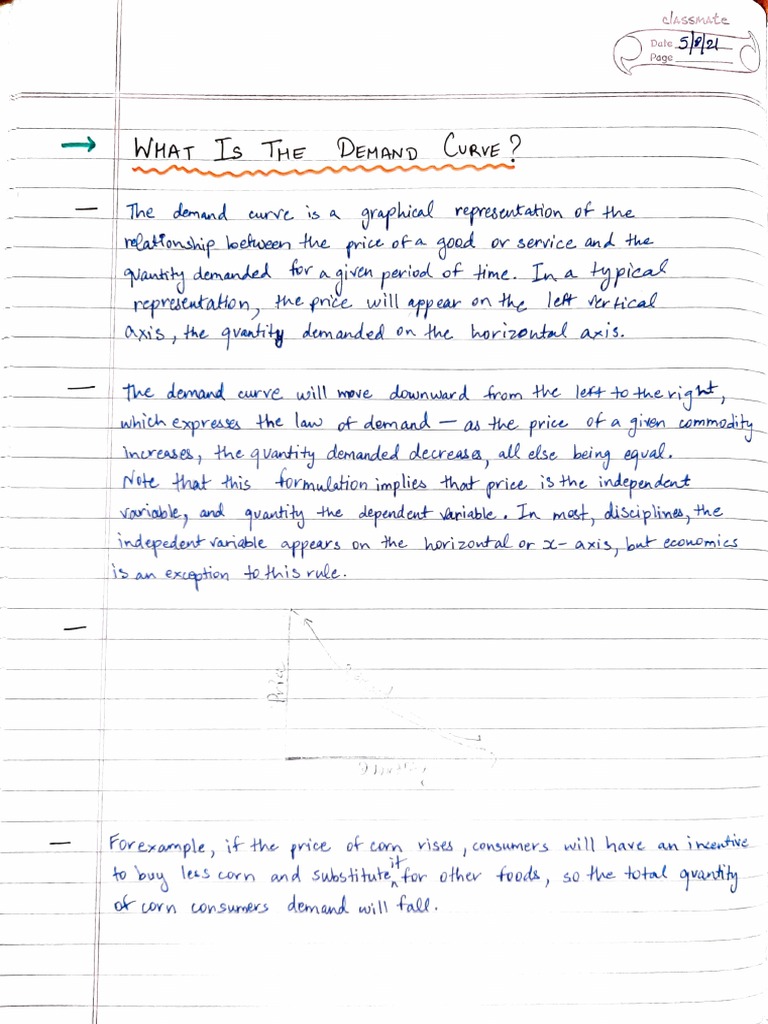 classmate
Date 5/8/21
Page
→ WHAT IS THE DEMAND CURVE?
— The demand curve is a graphical representation of the
relationship between the price of a good or service and the
quantity demanded for a given period of time. In a typical
representation, the price will appear on the left vertical
axis, the quantity demanded on the horizontal axis.
— The demand curve will move downward from the left to the right,
which expresses the law of demand — as the price of a given commodity
increases, the quantity demanded decreases, all else being equal.
Note that this formulation implies that price is the independent
variable, and quantity the dependent variable. In most, disciplines, the
indepedent variable appears on the horizontal or x-axis, but economics
is an exception to this rule.
—
Price
— For example, if the price of corn rises, consumers will have an incentive
to buy less corn and substitute it for other foods, so the total quantity
of corn consumers demand will fall.